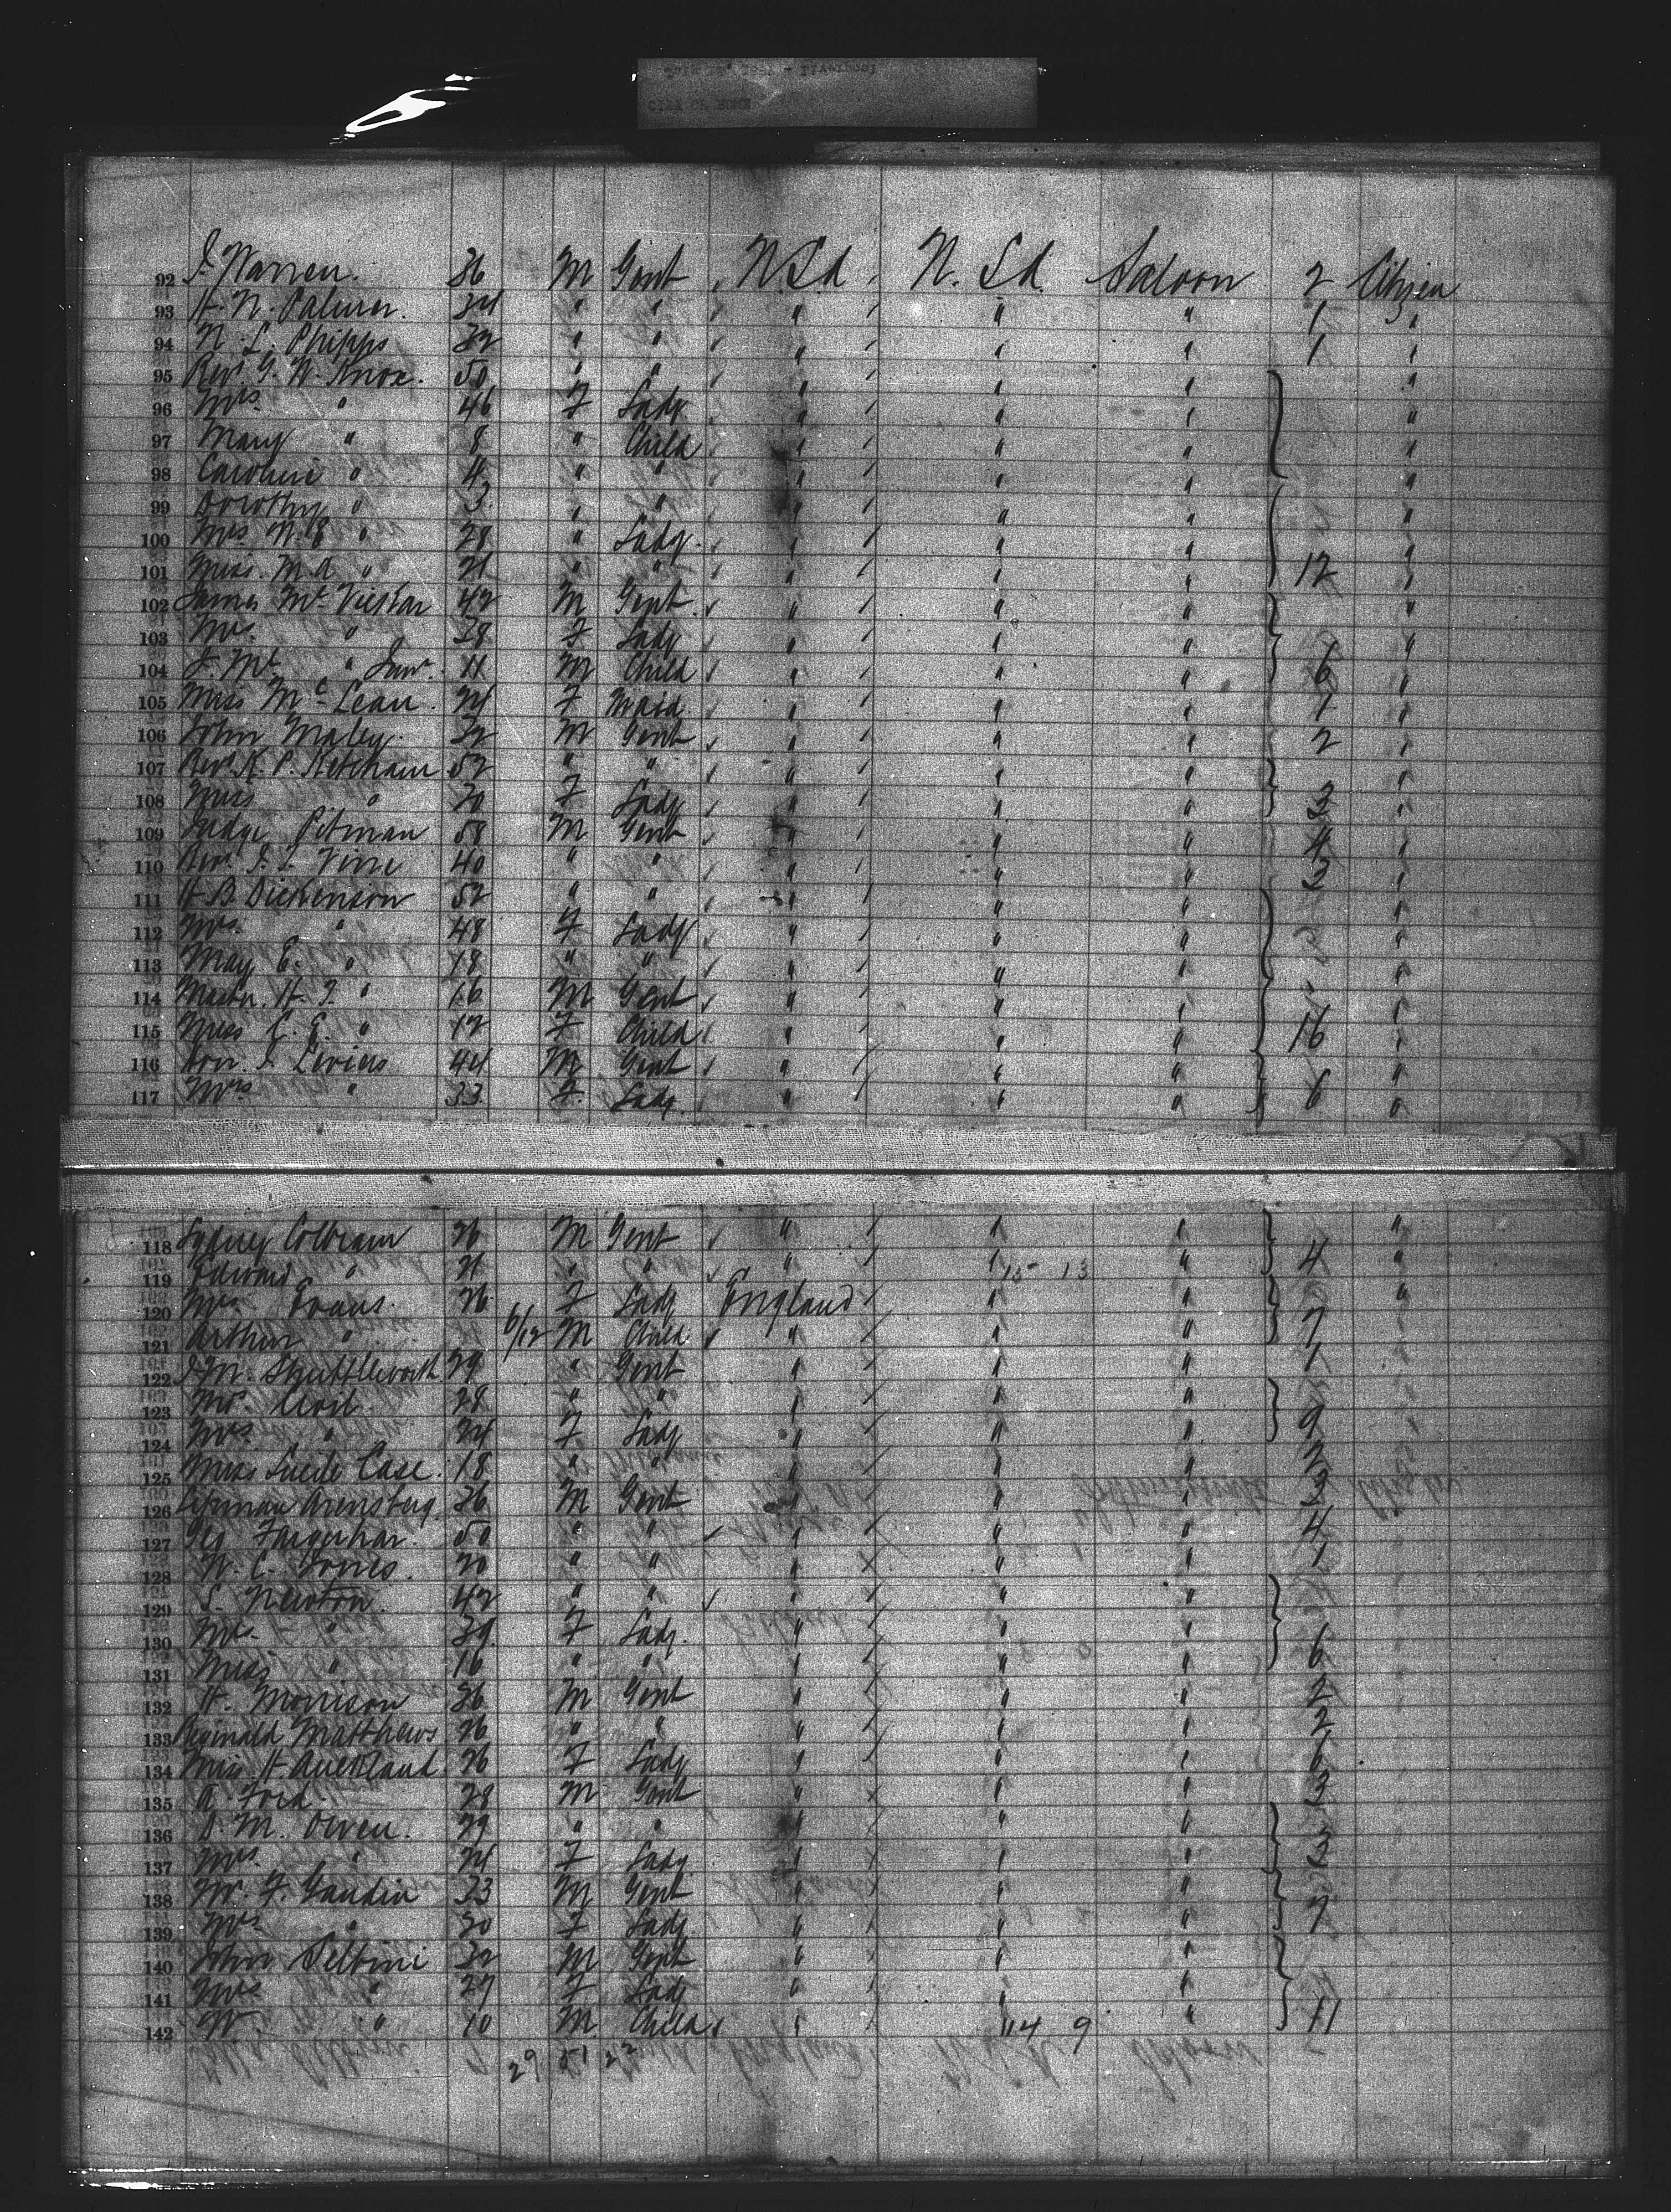 CITY OF ROME
92 J. Warren. 36 M Gent N. Sd. N. Sd. Saloon 2 Citizen
93 H. N. Palmer. 34 " " " " " 1 "
94 N. L. Phipps 32 " " " " " 1 "
95 Revd G. W. Knox. 50 " " " " " "
96 Mrs. " 46 F Lady " " " "
97 Mary " 8 " Child " " " "
98 Caroline " 4 " " " " " "
99 Dorothy " 3 " " " " " "
100 Mrs N. E " 28 " Lady. " " " "
101 Miss. M. A " 21 " " " " " 12 "
102 James Mc 42 M Gent. " " " "
103 Mrs. " 38 F Lady " " " "
104 J. Mc " Junr. 11 M Child " " " 6 "
105 Miss McLean. 24 F Maid. " " " 1 "
106 John Maley. 32 M Gent " " " 2 "
107 Revd K. P. Ketcham 52 " " " " " "
108 Miss " 20 F Lady " " " 3 "
109 Judge Pitman 58 M Gent " " " 4 "
110 Revd 40 " " " " " 3 "
111 H. B. Dickenson 52 " " " " " "
112 Mrs. " 48 F Lady " " " "
113 May E. " 18 " " " " " "
114 Master. H. F. " 16 M Gent " " " "
115 Miss C. E. " 12 F Child " " " 16 "
116 Hon. J. 44 M Gent " " " "
117 Mrs " 33 F Lady. " " " 6 "
118 Sydney Colbram 26 M Gent " " " "
119 Edward " 21 " " " " 15 13 " 4 "
120 Mrs Evans. 26 F Lady England " " "
121 Arthur " 6/12 M Child " " " 7
122 J. M. Shuttleworth 29 " Gent " " " 1
123 Mr. Cecil. 28 " " " " "
124 Mrs. " 24 F Lady " " " 9
125 Miss Lucile Case. 18 " " " " " 2
126 Lipman Arensberg. 36 M Gent " " " 3
127 Geo Farquhar. 50 " " " " " 4
128 W. C. Jones. 20 " " " " " 1
129 S. Newton. 42 " " " " "
130 Mrs. " 39 F Lady. " " "
131 Miss " 16 " " " " " 6
132 H. Morrison 36 M Gent " " " 2
133 Reginald Matthews 26 " " " " " 2
134 Miss H Auckland 26 F Lady " " " 6
135 A. Ford. 28 M Gent " " " 3
136 D. M. Owen. 29 " " " " "
137 Mrs. " 24 F Lady " " " 3
138 Mr. F. Gaudin 33 M Gent " " "
139 Mrs " 20 F Lady " " " 7
140 John 32 M Gent " " "
141 Mrs " 27 F Lady " " "
142 W. " 10 M Child " " 14 9 " 11
29 51 22